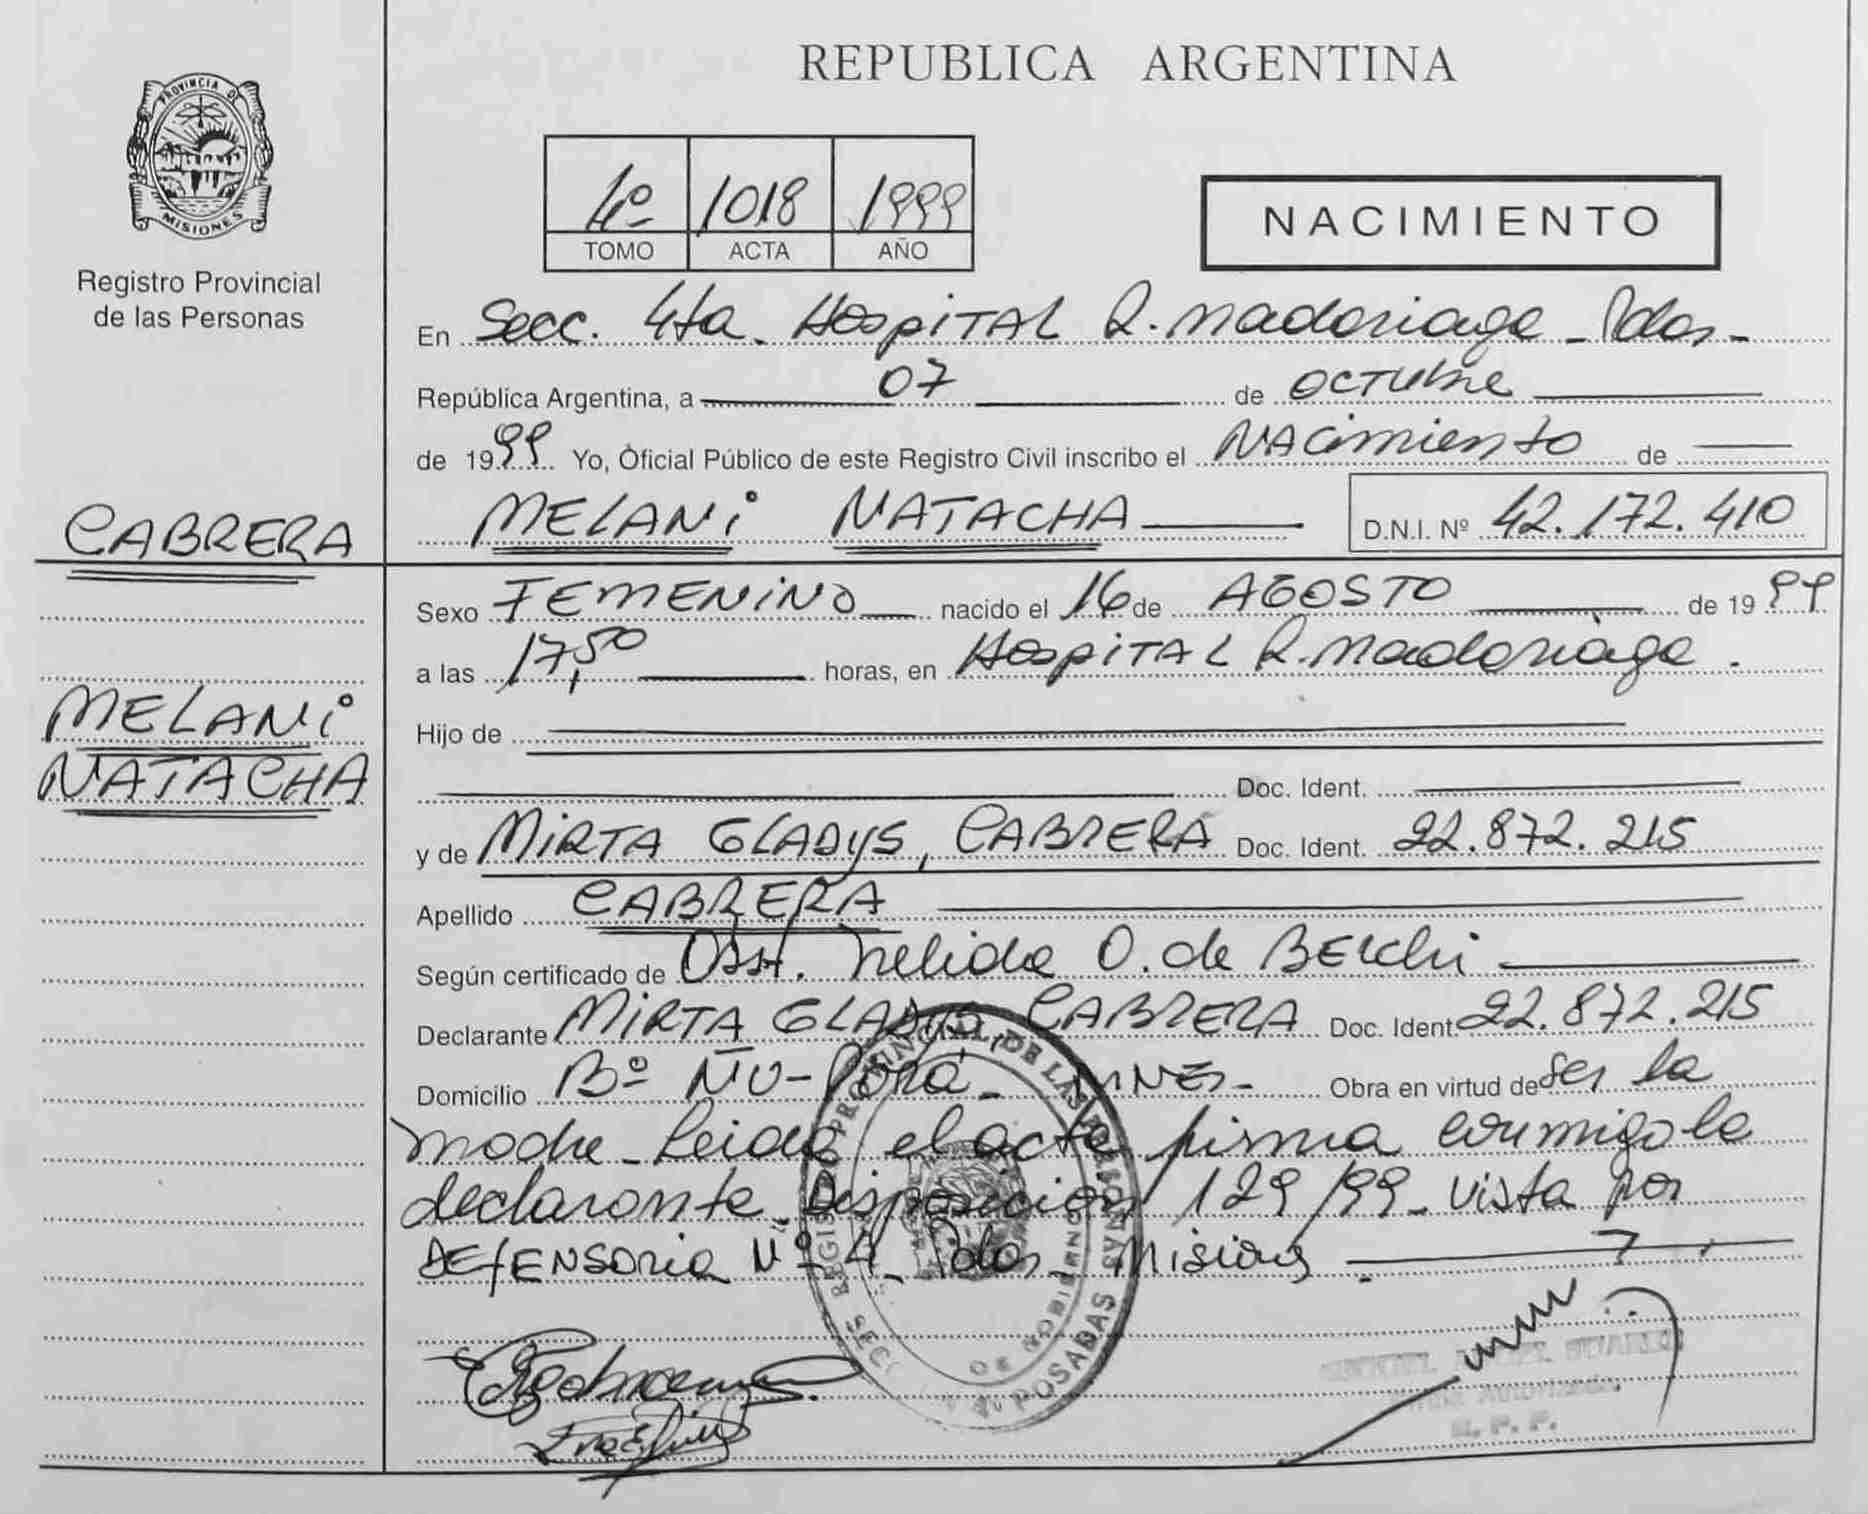 REPUBLICA ARGENTINA
PROVINCIA DE
MISIONES
Registro Provincial
de las Personas
4º 1018 1999
TOMO ACTA AÑO
NACIMIENTO
En Secc. 4ta. Hospital R. Madariaga - Pdas -
República Argentina, a 07 de octubre
de 1999 Yo, Oficial Público de este Registro Civil inscribo el Nacimiento de
CABRERA
MELANi NATACHA D.N.I. Nº 42.172.410
Sexo FEMENiNO nacido el 16 de AGOSTO de 1999
a las 17,50 horas, en Hospital R. Madariaga.
MELANi
NATACHA
Hijo de
Doc. Ident.
y de MiRTA GLADYS, CABRERA Doc. Ident. 22.872.215
Apellido CABRERA
Según certificado de Obst. Nelida O. de
Declarante MiRTA GLADYS CABRERA Doc. Ident. 22.872.215
Domicilio Bº ÑU-Porá - Obra en virtud de ser la
madre - Leida el acta firma conmigo la
declarante. Disposicion 129/99 - vista por
DEfENSoria Nº 4 - Pdas - Misiones
REGISTRO PROVINCIAL DE LAS PERSONAS
DE GOBIERNO
POSADAS
R. P. P.